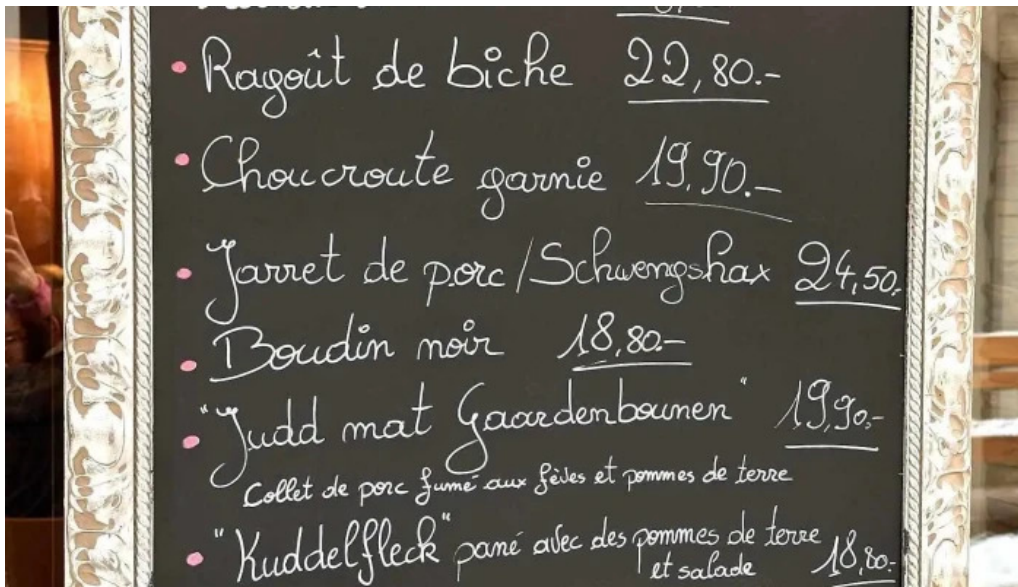 • Ragoût de biche 22,80.-
• Choucroute garnie 19,90.-
• Jarret de porc/Schwengshax 24,50.-
• Boudin noir 18,80.-
• "Judd mat Gaardenbounen" 19,90.-
Collet de porc fumé aux fèves et pommes de terre
• "Kuddelfleck" pané avec des pommes de terre
et salade 18,80.-